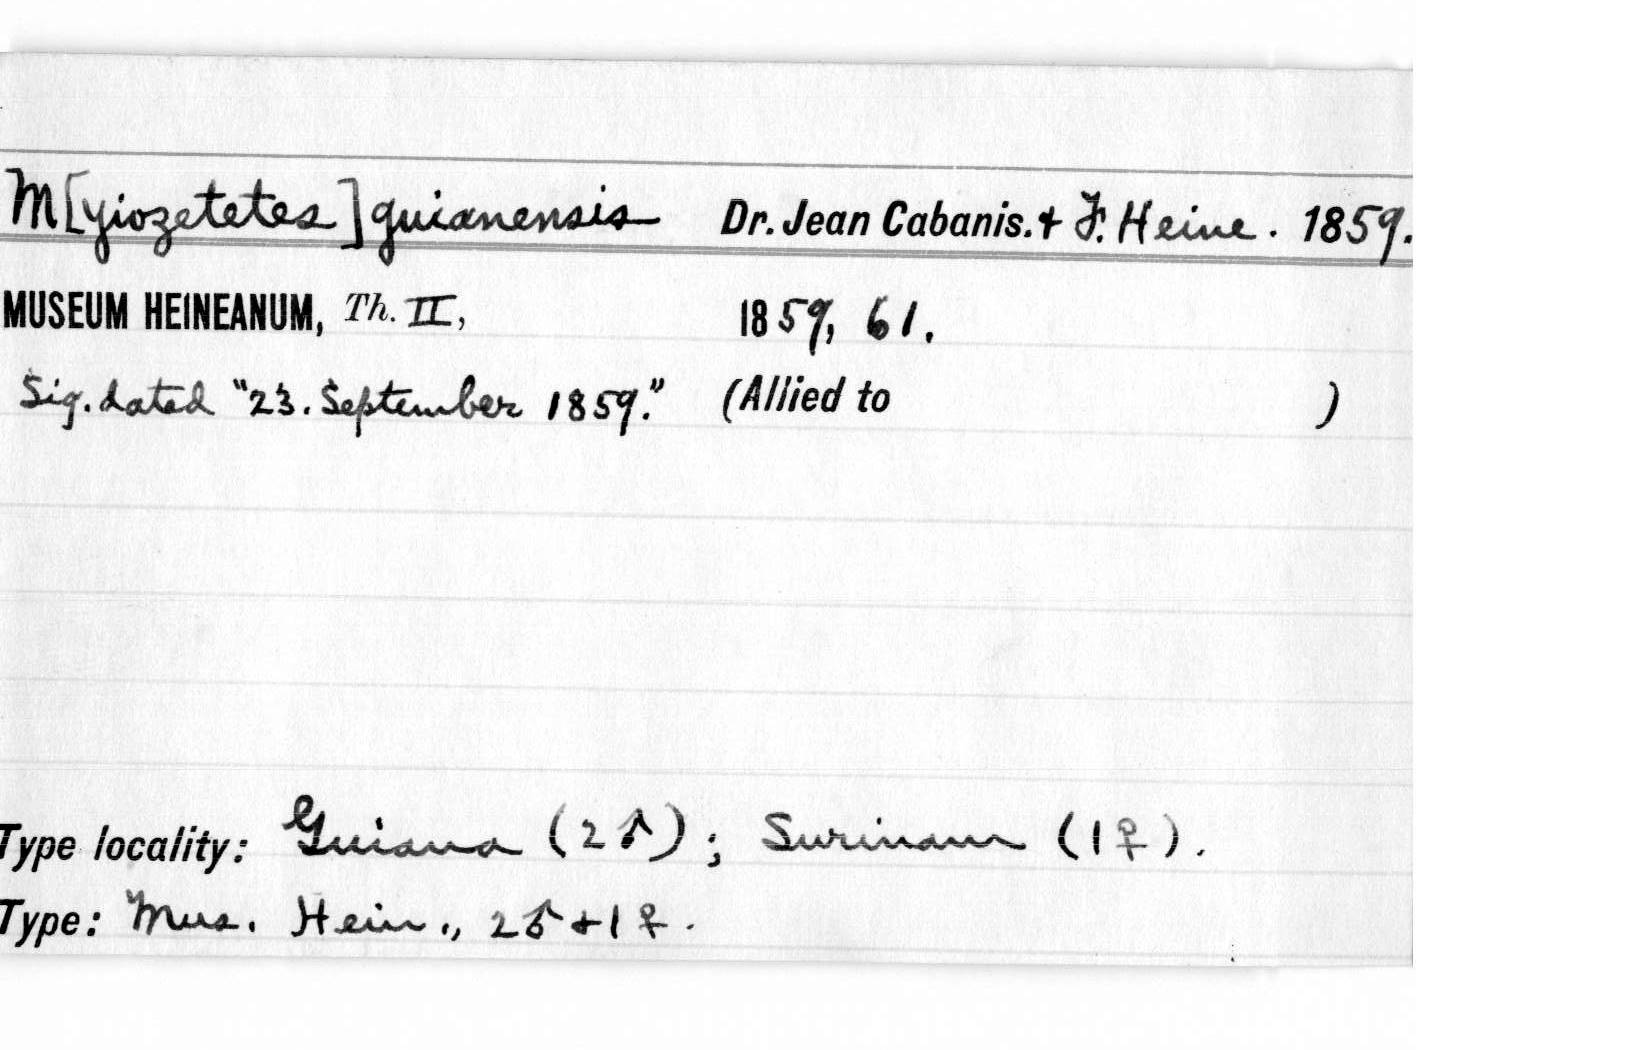 M[yiozetetes] guianensis Dr. Jean Cabanis. & F. Heine. 1859.
MUSEUM HEINEANUM, Th. II, 1859, 61.
Sig. dated "23. September 1859." (Allied to )
Type locality: Guiana (2♂); Surinam (1♀).
Type: Mus. Hein., 2♂ + 1♀.